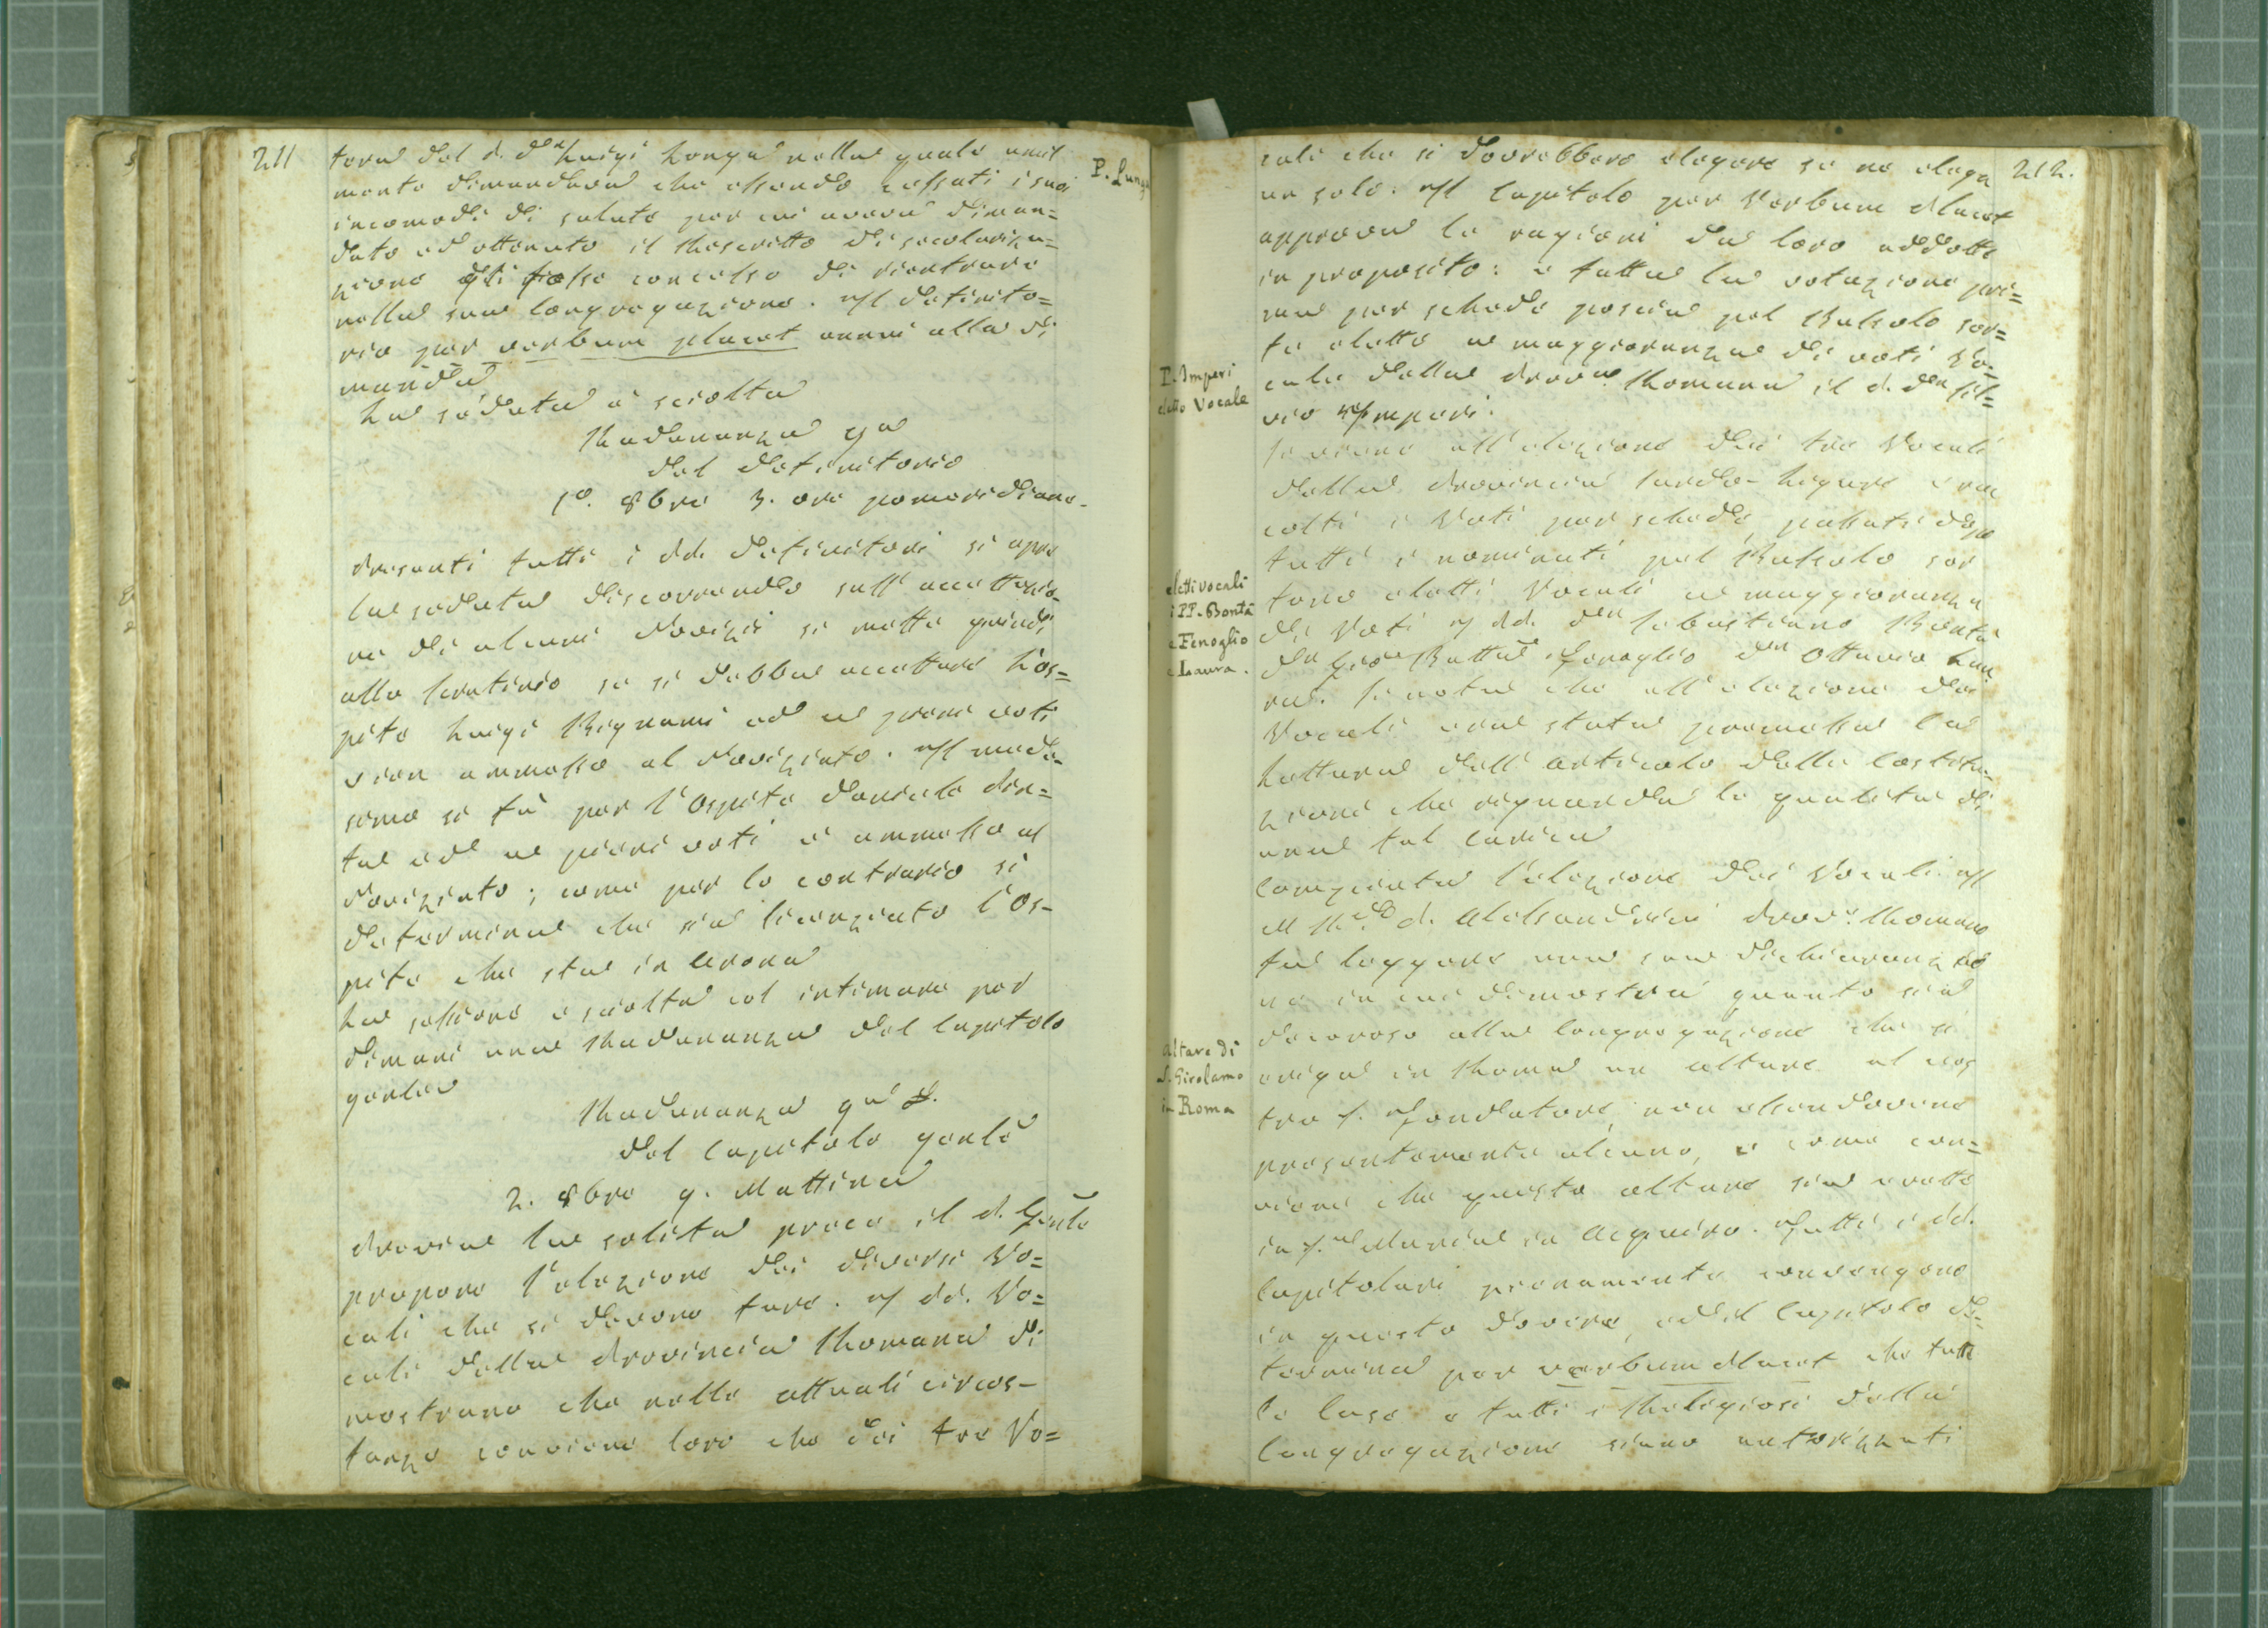 211
tera del P. Dn Luigi Longa nella quale umil
mente dimandava che essendo cessati i suoi
incomodi di salute per cui aveva diman=
dato ed ottenuto il Rescritto di secolarizza=
zione gli fosse concesso di rientrare
nella sua Congregazione. Il Definito=
rio per verbum placet annui alla di
manda
La seduta è sciolta
P. Longa
Radunanza 7a
del Definitorio
1o. 8bre 3. ore pomeridiane
Presenti tutti i PP. Definitori si apre
la seduta discorrendo sull' accettazio=
ne di alcuni Novizii si mette quindi
allo scrutinio se si debba accettare l'Os=
pite Luigi Bignami ed a pieni voti
vien ammesso al Noviziato. Il mede=
simo si fà per l'Ospite Daniele Pin=
ta ed a pieni voti è ammesso al
Noviziato; come per lo contrario si
determina che sia licenziato l'Os-
pite che sta in Arona
La sessione è sciolta col intimare per
dimani una Radunanza del Capitolo
genle
Radunanza qa 8.
del Capitolo genle
2. 8bre 9. Mattina
Previa la solita prece il P. Genle
propone l'elezione dei diversi Vo=
cali che si devono fare. I PP. Vo=
cali della Provincia Romana di
mostrano che nelle attuali circos-
tanze conviene loro che dei tre Vo=
212.
cali che si dovrebbero elegere se ne elega
un solo. Il Capitolo per Verbum Placet
approva le ragioni da loro addotte
in proposito: e fatta la votazione pri=
ma per schede poscia pel Bussolo sor=
te eletto a maggioranza di voti Vo=
cale della Prova. Romana il P. Dn Sil=
vio Imperi.
P. Imperi
eletto Vocale
Si viene all'elezione dei tre Vocali
della Provincia Sardo-Ligure e rac
colti i Voti per schede, passati dopo
tutti i nominati pel Bussolo sor
tono eletti Vocali a maggioranza
di Voti i PP. Dn Sebastiano Bontà
Dn Gio Batta Fenoglio Dn Ottavio Lau
ra. Si nota che all'elezione dei
Vocali era stata premessa la
Lettura dell' articolo delle Costitu=
zioni che riguarda le qualità di
una tal carica
eletti vocali
i PP. Bontà
e Fenoglio
e Laura.
Compiuta l'elezione dei Vocali il
M Rdo P. Alessandrini Prove. Romano
fa leggere una sua dichiarazio
ne in cui dimostra quanto sia
decoroso alla Congregazione che si
eriga in Roma un altare al nos
tro S. Fondatore, non essendovene
presentemente alcuno, e come con=
viene che questo altare sia eretto
in S. Maria in Aquiro. Tutti i PP.
Capitolari pienamente convengono
in questo dovere, ed il Capitolo de=
termina per verbum Placet che tutte
le Case e tutti i Religiosi della
Congregazione siano autorizzati
altare di
S. Girolamo
in Roma